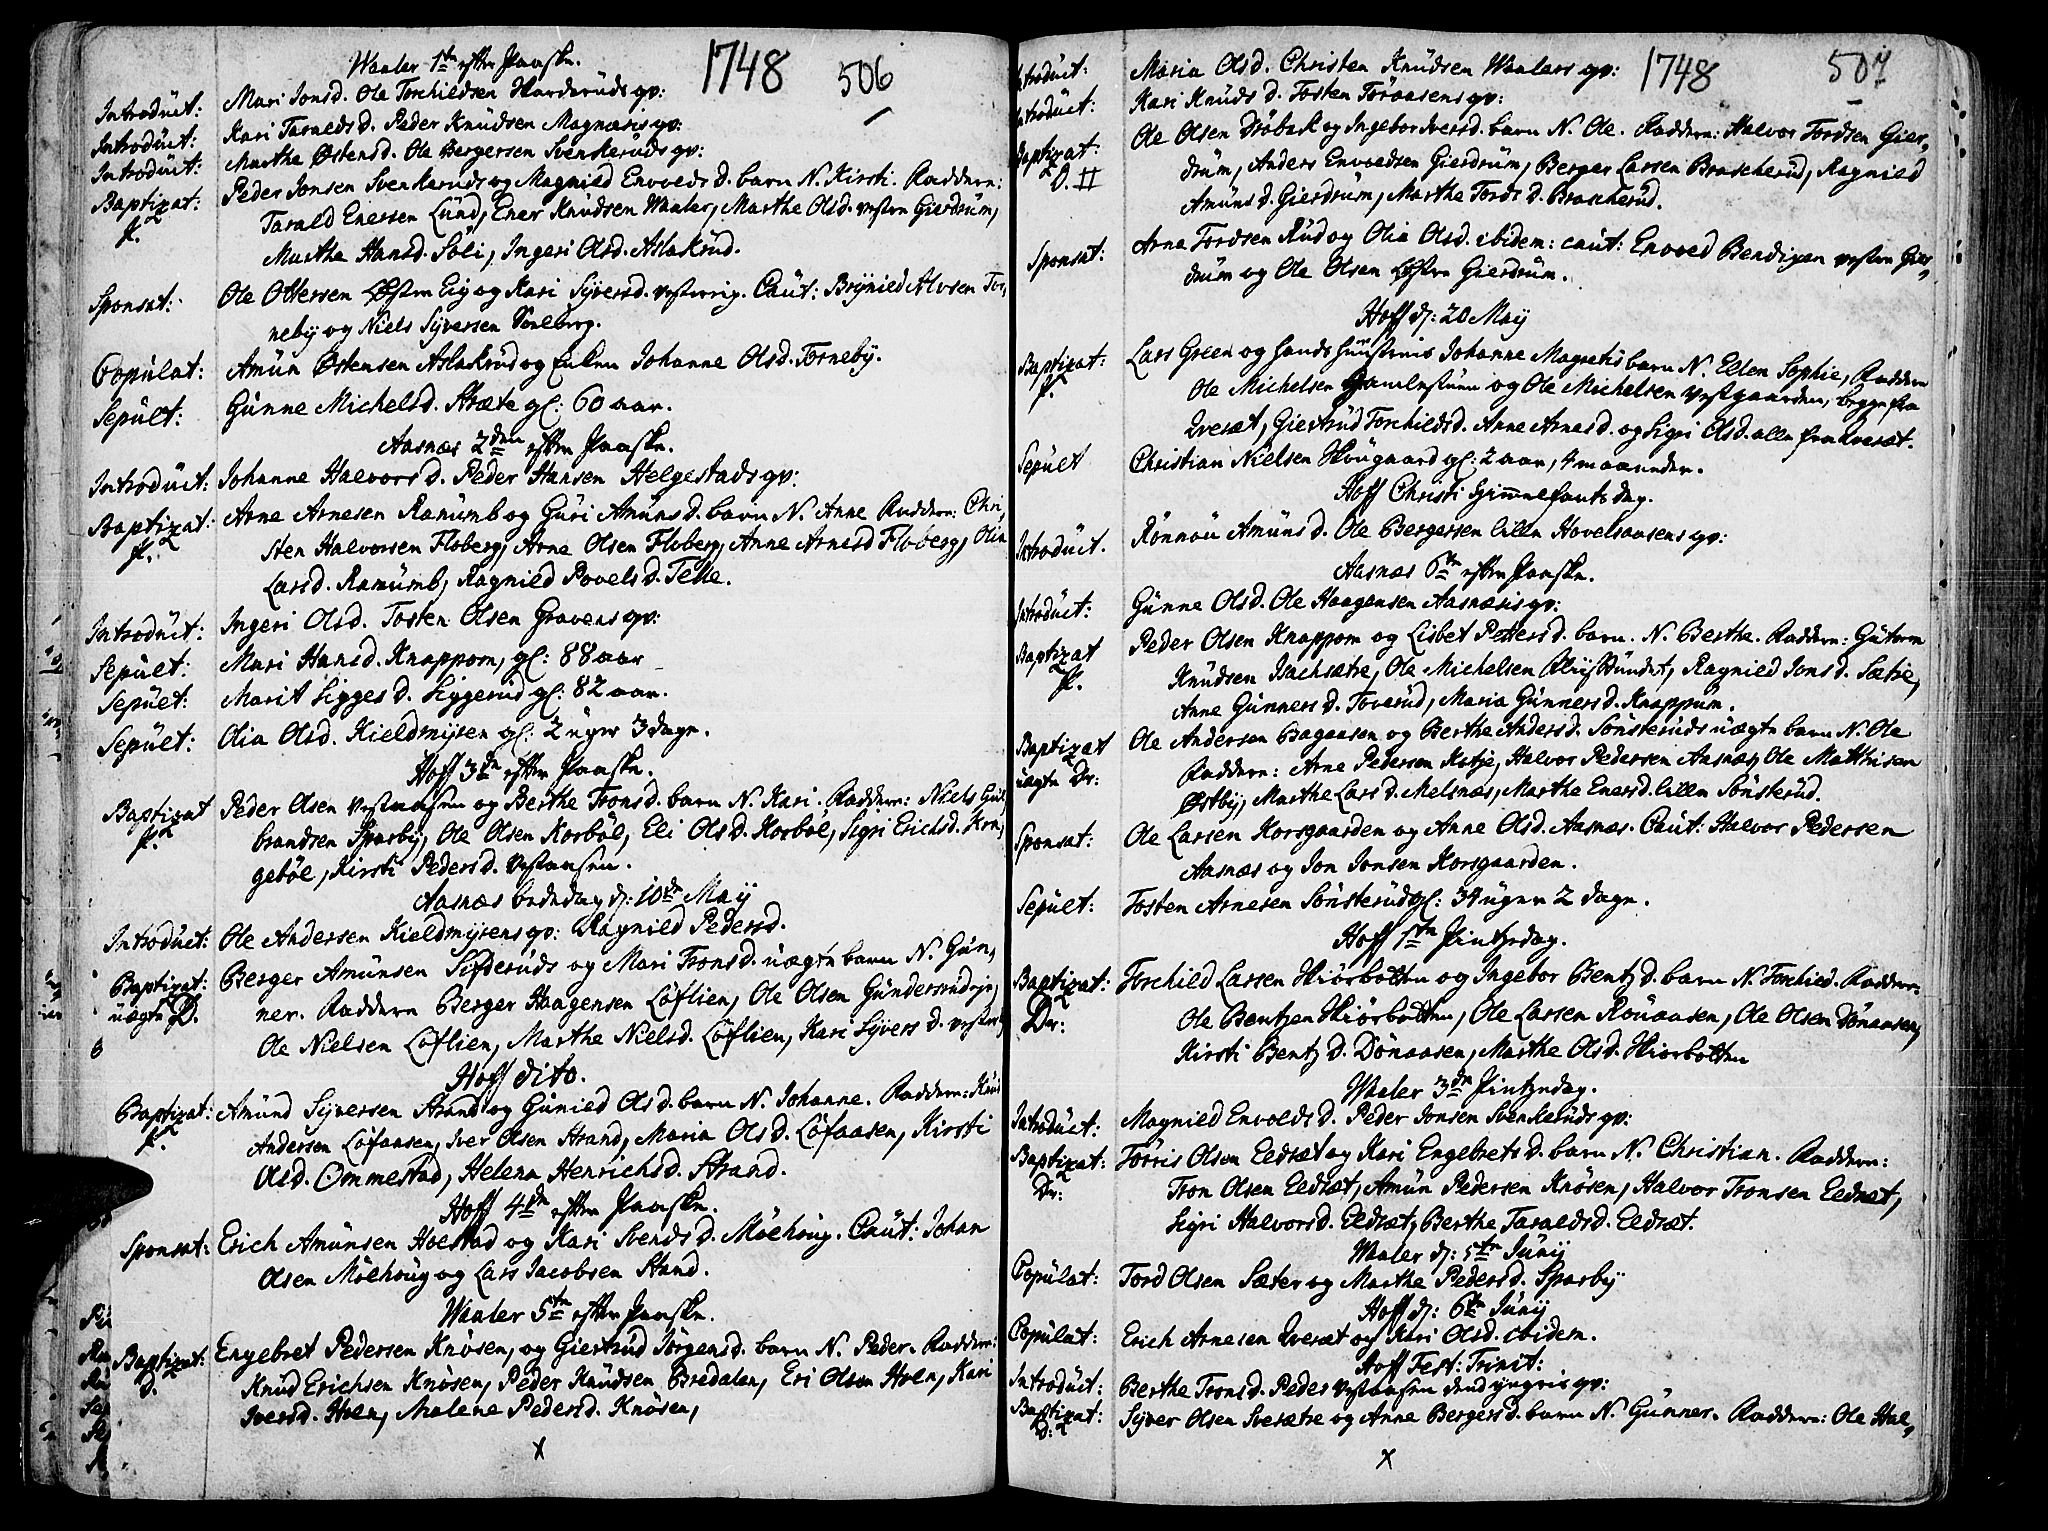 1748 506
Waaler 1te efter Paaske.
Introduct: Mari Jonsd. Ole Torchildsen Harderuds qv:
Introduct: Kari Taraldsd. Peder Knudsen Magnæsis qv:
Introduct: Marthe Østensd. Ole Bergersen Svenkeruds qv:
Baptizat: Peder Jonsen Svenkeruds og Magnild Envoldsd. barn N. Kirsti. Faddere:
p. Tarald Enersen Lund, Ener Knudsen Waaler, Marthe Olsd. vestre Gierdrum,
Marthe Hansd. Söli, Ingeri Olsd. Aslakrud.
Sponsat: Ole Ottersen Østre Eig og Kari Syversd. vestereig. Caut: Brynild Alvsen Tor,
neby og Niels Syversen Sonlberg.
Copulat: Amun Østensen Aslakrud og Enken Johanne Olsd. Torneby.
Sepult: Gunne Michelsd. Stræte gl: 60 aar.
Aasnæs 2den efter Paaske.
Introduct: Johanne Halvorsd. Peder Hansen Helgestads qv:
Baptizat: Arne Arnesen Ramumb og Guri Amunsd. barn N. Anne Faddere: Chri,
p. sten Halvorsen Floberg, Arne Olsen Floberg, Anne Arnesd Floberg, Olia
Larsd. Ramumb, Ragnild Povelsd. Telle.
Introduct: Ingeri Olsd. Tosten Olsen Gravens qv:
Sepult: Mari Hansd. Knappom, gl: 88 aar
Sepult: Marit Siggesd. Siggerud gl: 82 aar.
Sepult: Olia Olsd. Kieldmyren gl: 2 uger 3 dage.
Hoff 3die efter Paaske.
Baptizat Peder Olsen Vestaasen og Berthe Tronsd. barn N. Kari. Faddere: Niels Gul
p. brandsen Sparby, Ole Olsen Korböl, Eli Olsd. Korböl, Sigri Erichsd. Kon,
geböl, Kirsti Pedersd. Vestaasen.
Aasnæs bededag d: 10de May
Introduct: Ole Andersen Kieldmyrens qv: Ragnild Pedersd.
Baptizat: Berger Amunsen Sifderuds og Mari Tronsd. uægte barn N. Gun,
uægte D. ner. Faddere Berger Haagensen Löflien, Ole Olsen Gundersendeje,
Ole Nielsen Löflien, Marthe Nielsd. Löflien, Kari Syversd.
Hoff dito.
Baptizat: Amund Syversen Strand og Gunild Olsd. barn N. Johanne. Faddere: Knud
p. Andersen Löfaasen, Iver Olsen Strand, Maria Olsd. Löfaasen, Kirsti
Olsd. Ommestad, Helena Henrichsd. Strand.
Hoff 4de efter Paaske.
Sponsat: Erich Amunsen Hoelstad og Kari Svendsd. Möehoug. Caut: Johan
Olsen Möehoug og Lars Jacobsen Stand.
Waaler 5te efter Paaske.
Baptizat: Engebret Pedersen Knösen, og Giertrud Jörgensd. barn N. Peder. Faddere:
D. Knud Erichsen Knösen, Peder Knudsen Bredalen, Eri Olsen Holen, Kari
Iversd. Holen, Malene Pedersd. Knösen,
x
1748 507
Introduct: Maria Olsd. Christen Knudsen Waalers qv:
Introduct: Kari Knudsd. Tosten Toraasens qv:
Baptizat: Ole Olsen Dröbak og Ingebor Iversd. barn N. Ole. Faddere: Halvor Tordsen Gier,
D. II drum, Anders Envoldsen Gierdrum, Berger Larsen Braskerud, Ragnild
Amunsd. Gierdrum, Marthe Tordsd. Braskerud.
Sponsat: Arne Tordsen Rud og Olia Olsd. ibidem: caut: Envold Bendixen vestre Gier,
drum og Ole Olsen Østre Gierdrum.
Hoff d: 20 May
Baptizat: Lars Green og hands hustrues Johanne Magrethes barn N. Ellen Sophie, Faddere
p. Ole Michelsen Gamlestuen og Ole Michelsen Vestgaarden, begge fra
Qveræt, Giertrud Torchildsd. Anne Arnesd. og Sigri Olsd. alle fra Kveræt.
Sepult Christian Nielsen Hougaard gl: 2 aar, 4 maaneder.
Hoff Christi Himmelfarts dag.
Introduct. Rönnou Amunsd. Ole Bergersen lille Hovelsaasens qv:
Aasnæs 6te efter Paaske.
Introduct: Gunne Olsd. Ole Haagensen Aasnæsis qv:
Baptizat Peder Olsen Knappom og Lisbet Pettersd. barn. N. Berthe. Faddere: Gutorm
p. Knudsen Isachsætre, Ole Michelsen Blystfundet, Ragnild Jonsd. Sætre,
Anne Gunnersd. Toverud, Maria Gunnersd. Knappum.
Baptizat Ole Andersen Bagaasen og Berthe Andersd. Sönsteruds uægte barn N. Ole
uægte Dr: Faddere: Arne Pedersen Katje, Halvor Pedersen Aasnæs, Ole Matthisen
Østby, Marthe Larsd. Melsnæs, Marthe Enersd. lille Sönsterud.
Sponsat: Ole Larsen Korsgaarden og Anne Olsd. Aasnæs. Caut: Halvor Pedersen
Aasnæs og Jon Jonsen Korsgaarden.
Sepult: Tosten Arnesen Sönsterud gl: 34 uger 2 dage.
Hoff 1te Pintzedag.
Baptizat: Torchild Larsen Hiörbotten og Ingebor Bentzd. barn N. Torchild. Faddere:
Dr: Ole Bentzen Hiörbotten, Ole Larsen Rönaasen, Ole Olsen Dönaasen,
Kirsti Bentzd. Dönaasen, Marthe Olsd. Hiörbotten
Waaler 3de Pintzedag.
Introduct: Magnild Envoldsd. Peder Jonsen Svenkeruds qv:
Baptizat: Torris Olsen Eldræt og Kari Engebretsd. barn N. Christian. Faddere:
Dr: Tron Olsen Eldræt, Amun Pedersen Knösen, Halvor Tronsen Eldræt,
Sigri Halvorsd. Eldræt, Berthe Taraldsd. Eldræt.
Waaler d: 5te Juny
Copulat: Tord Olsen Sæter og Marthe Pedersd. Sparby
Hoff d: 6te Juny
Copulat: Erich Arnesen Qveræt og Kari Olsd. ibidem.
Hoff Fest: Trinit:
Introduct: Berthe Tronsd. Peder Vestaasen dend yngris qv:
Baptizat: Syver Olsen Sveræetre og Anne Bergersd. barn N. Gunner. Faddere: Ole Hal,
D:
x